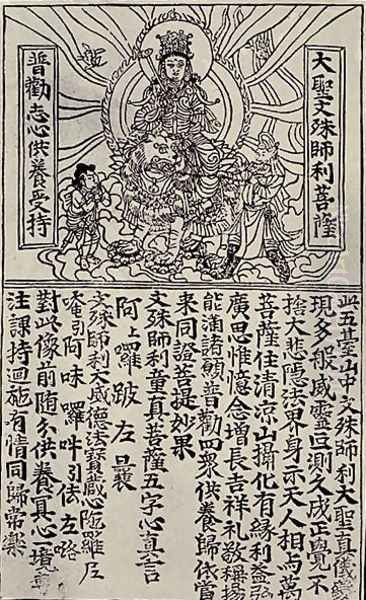 大聖文殊師利菩薩
普勸志心供養受持
此五臺山中文殊師利大聖真儀變
現多般威靈叵測久成正覺不
捨大悲隱法界身示天人相与萬
菩薩住清涼山攝化有緣利益弘
廣思惟憶念增長吉祥礼敬稱揚
能滿諸願普勸四衆供養歸依當
來同證菩提妙果
文殊師利童真菩薩五字心真言
阿上囉跛左曩
文殊師利大威德法寶藏心陁羅尼
唵引阿味囉吽引佉左咯
對此像前随分供養冥心境專
注課持迴施有情同歸常樂